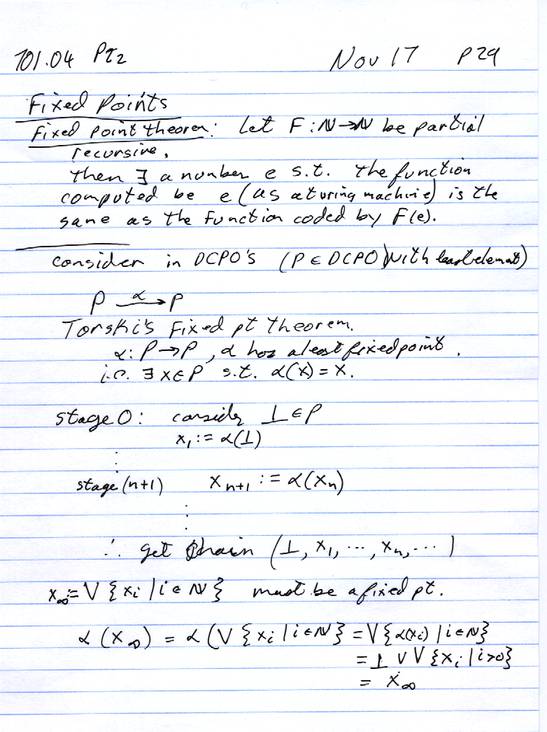 701.04 Pt2 Nov 17 p29
Fixed Points
Fixed point theorem: Let F:ℕ→ℕ be partial
recursive,
then ∃ a number e s.t. the function
computed be e (as a turing machine) is the
same as the function coded by F(e).
consider in DCPO's (P ∈ DCPO) with least element)
P —α→ P
Torski's Fixed pt theorem.
α: P→P, α has a least fixed point.
i.e. ∃ x∈P s.t. α(x) = x.
stage 0: consider ⊥∈P
x₁ := α(⊥)
⋮
stage (n+1) xₙ₊₁ := α(xₙ)
⋮
∴ get chain (⊥, x₁, ⋯, xₙ, ⋯)
x∞ := V {xᵢ | i∈ℕ} must be a fixed pt.
α(x∞) = α(V {xᵢ | i∈ℕ} = V{α(xᵢ) | i∈ℕ}
= ⊥ ∨ V {xᵢ | i>0}
= x∞